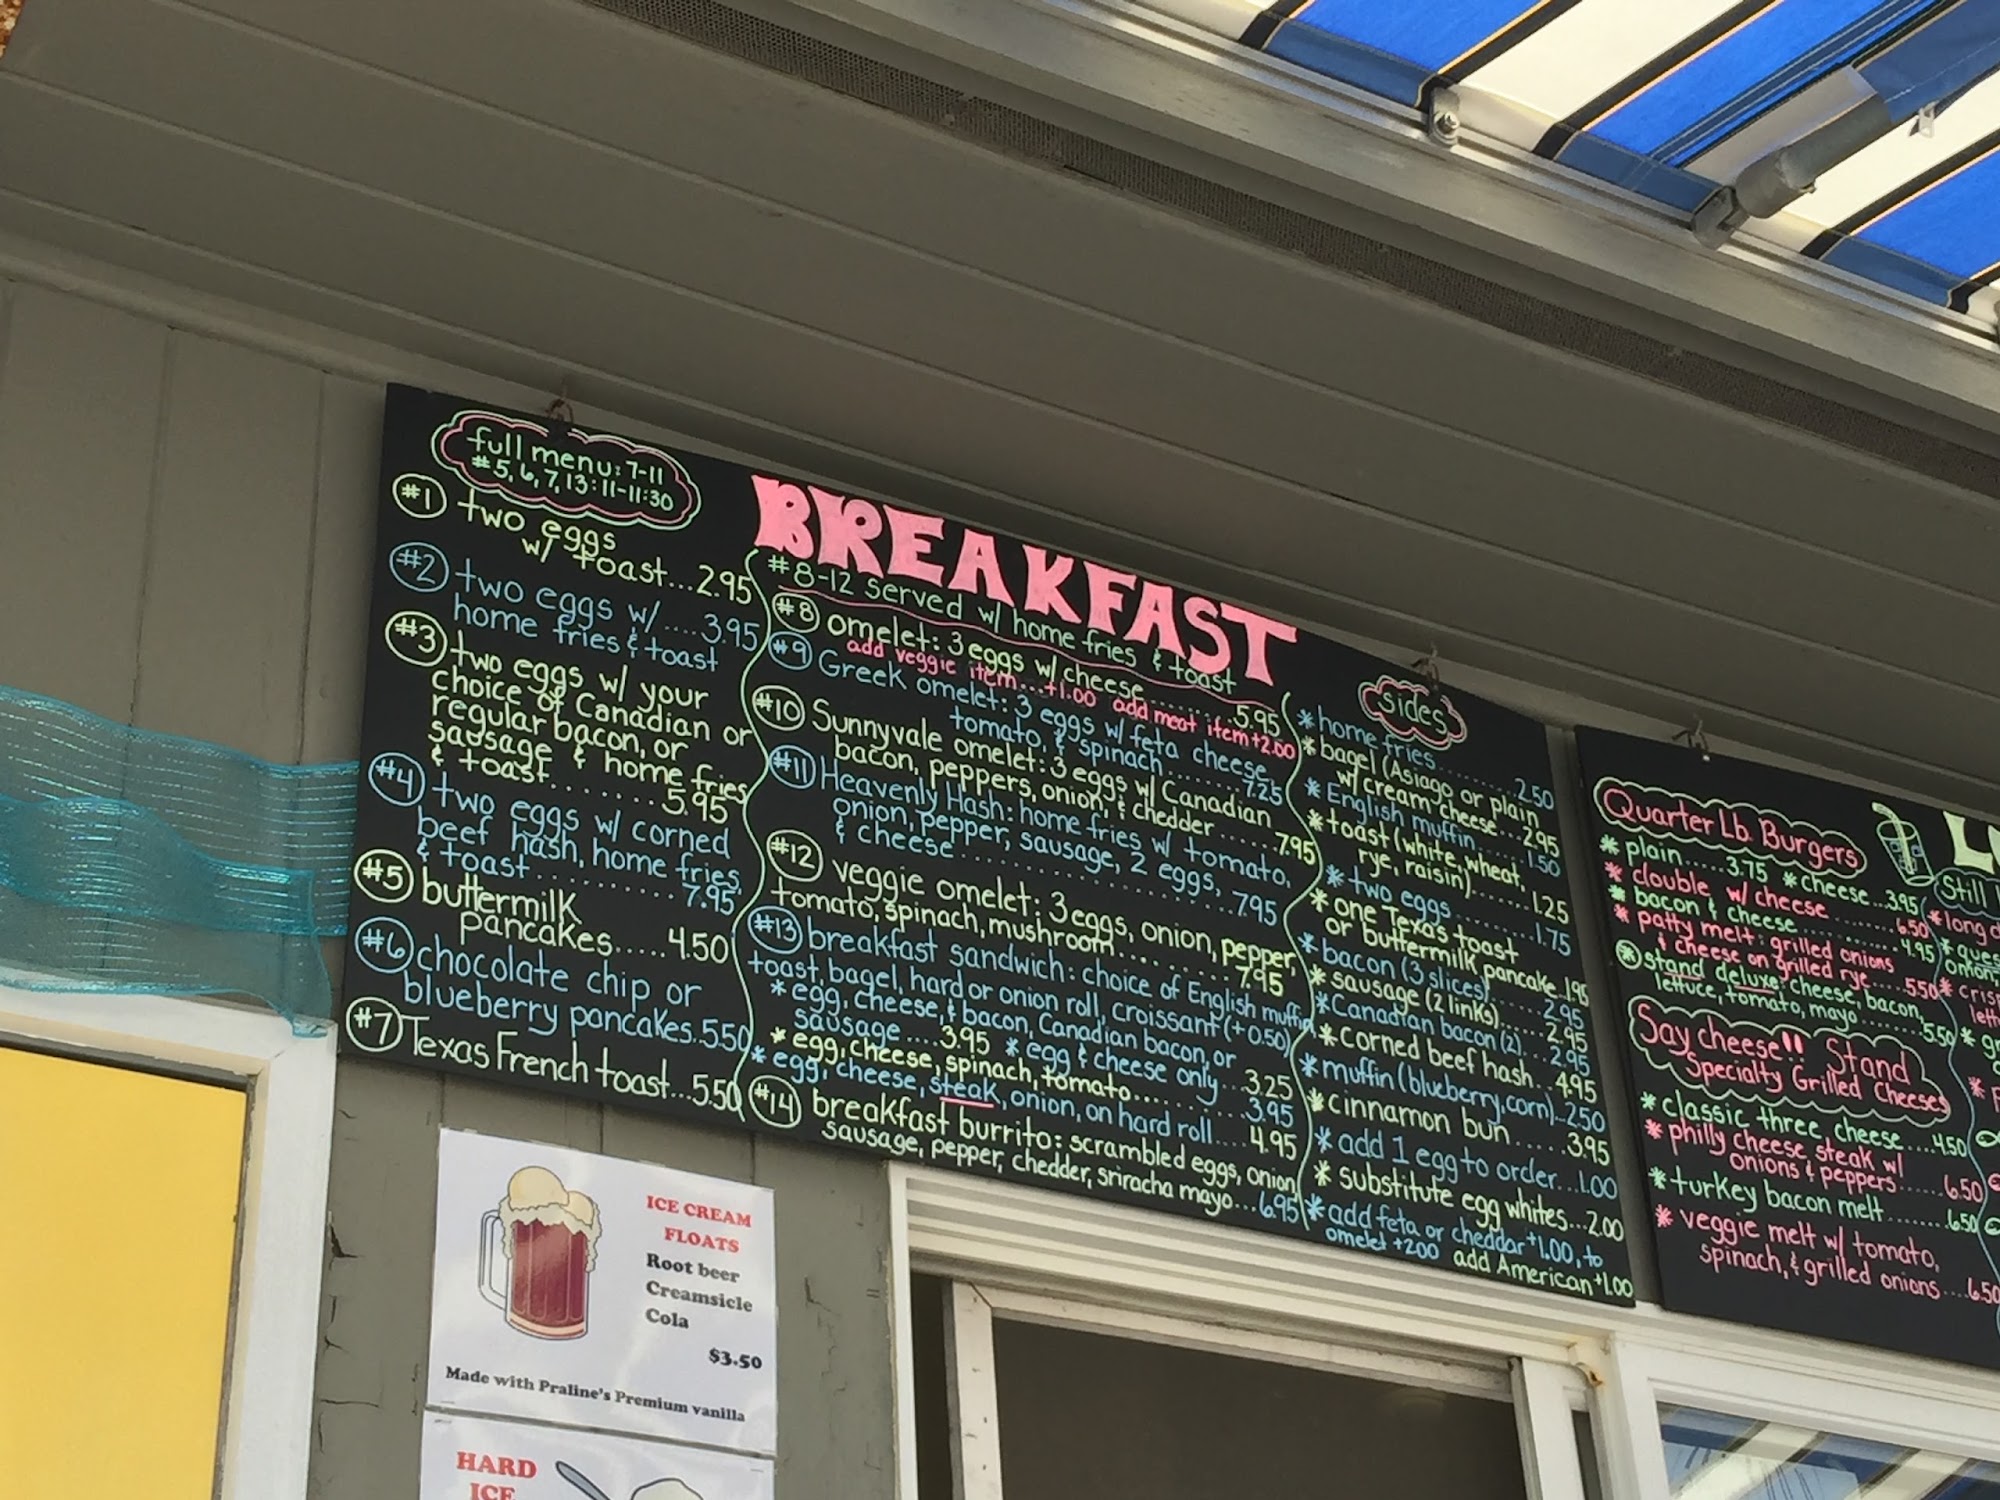 full menu: 7-11
#5, 6, 7, 13: 11-11:30
#1 two eggs
w/ toast...2.95
#2 two eggs w/....3.95
home fries & toast
#3 two eggs w/ your
choice of Canadian or
regular bacon, or
sausage & home fries
& toast........5.95
#4 two eggs w/ corned
beef hash, home fries,
& toast..........7.95
#5 buttermilk
pancakes.....4.50
#6 chocolate chip or
blueberry pancakes..5.50
#7 Texas French toast...5.50
BREAKFAST
#8-12 served w/ home fries & toast
#8 omelet: 3 eggs w/ cheese........5.95
add veggie item...+1.00 add meat item +2.00
#9 Greek omelet: 3 eggs w/ feta cheese,
tomato, & spinach........7.25
#10 Sunnyvale omelet: 3 eggs w/ Canadian
bacon, peppers, onion, & chedder......7.95
#11 Heavenly Hash: home fries w/ tomato,
onion, pepper, sausage, 2 eggs,
& cheese......................7.95
#12 veggie omelet: 3 eggs, onion, pepper,
tomato, spinach, mushroom..........7.95
#13 breakfast sandwich: choice of English muffin,
toast, bagel, hard or onion roll, croissant (+0.50)
* egg, cheese, & bacon, Canadian bacon, or
sausage....3.95 * egg & cheese only...3.25
* egg, cheese, spinach, tomato..........3.95
* egg, cheese, steak, onion, on hard roll....4.95
#14 breakfast burrito: scrambled eggs, onion,
sausage, pepper, chedder, sriracha mayo...6.95
sides
* home fries.........2.50
* bagel (Asiago or plain
w/ cream cheese...2.95
* English muffin......1.50
* toast (white, wheat,
rye, raisin)......1.25
* two eggs........1.75
* one Texas toast
or buttermilk pancake..1.95
* bacon (3 slices)......2.95
* sausage (2 links)......2.95
* Canadian bacon (2)...2.95
* corned beef hash..4.95
* muffin (blueberry, corn)..2.50
* cinnamon bun.....3.95
* add 1 egg to order...1.00
* substitute egg whites...2.00
* add feta or cheddar +1.00, to
omelet +2.00 add American +1.00
Quarter Lb. Burgers
* plain.....3.75 * cheese...3.95
* double w/ cheese..........6.50
* bacon & cheese............4.95
* patty melt: grilled onions
& cheese on grilled rye....5.50
* stand deluxe: cheese, bacon,
lettuce, tomato, mayo........5.50
Say cheese!! Stand
Specialty Grilled Cheeses
* classic three cheese....4.50
* philly cheese steak w/
onions & peppers......6.50
* turkey bacon melt........6.50
* veggie melt w/ tomato,
spinach, & grilled onions....6.50
Still
* long
ICE CREAM
FLOATS
Root beer
Creamsicle
Cola
$3.50
Made with Praline's Premium vanilla
HARD
ICE